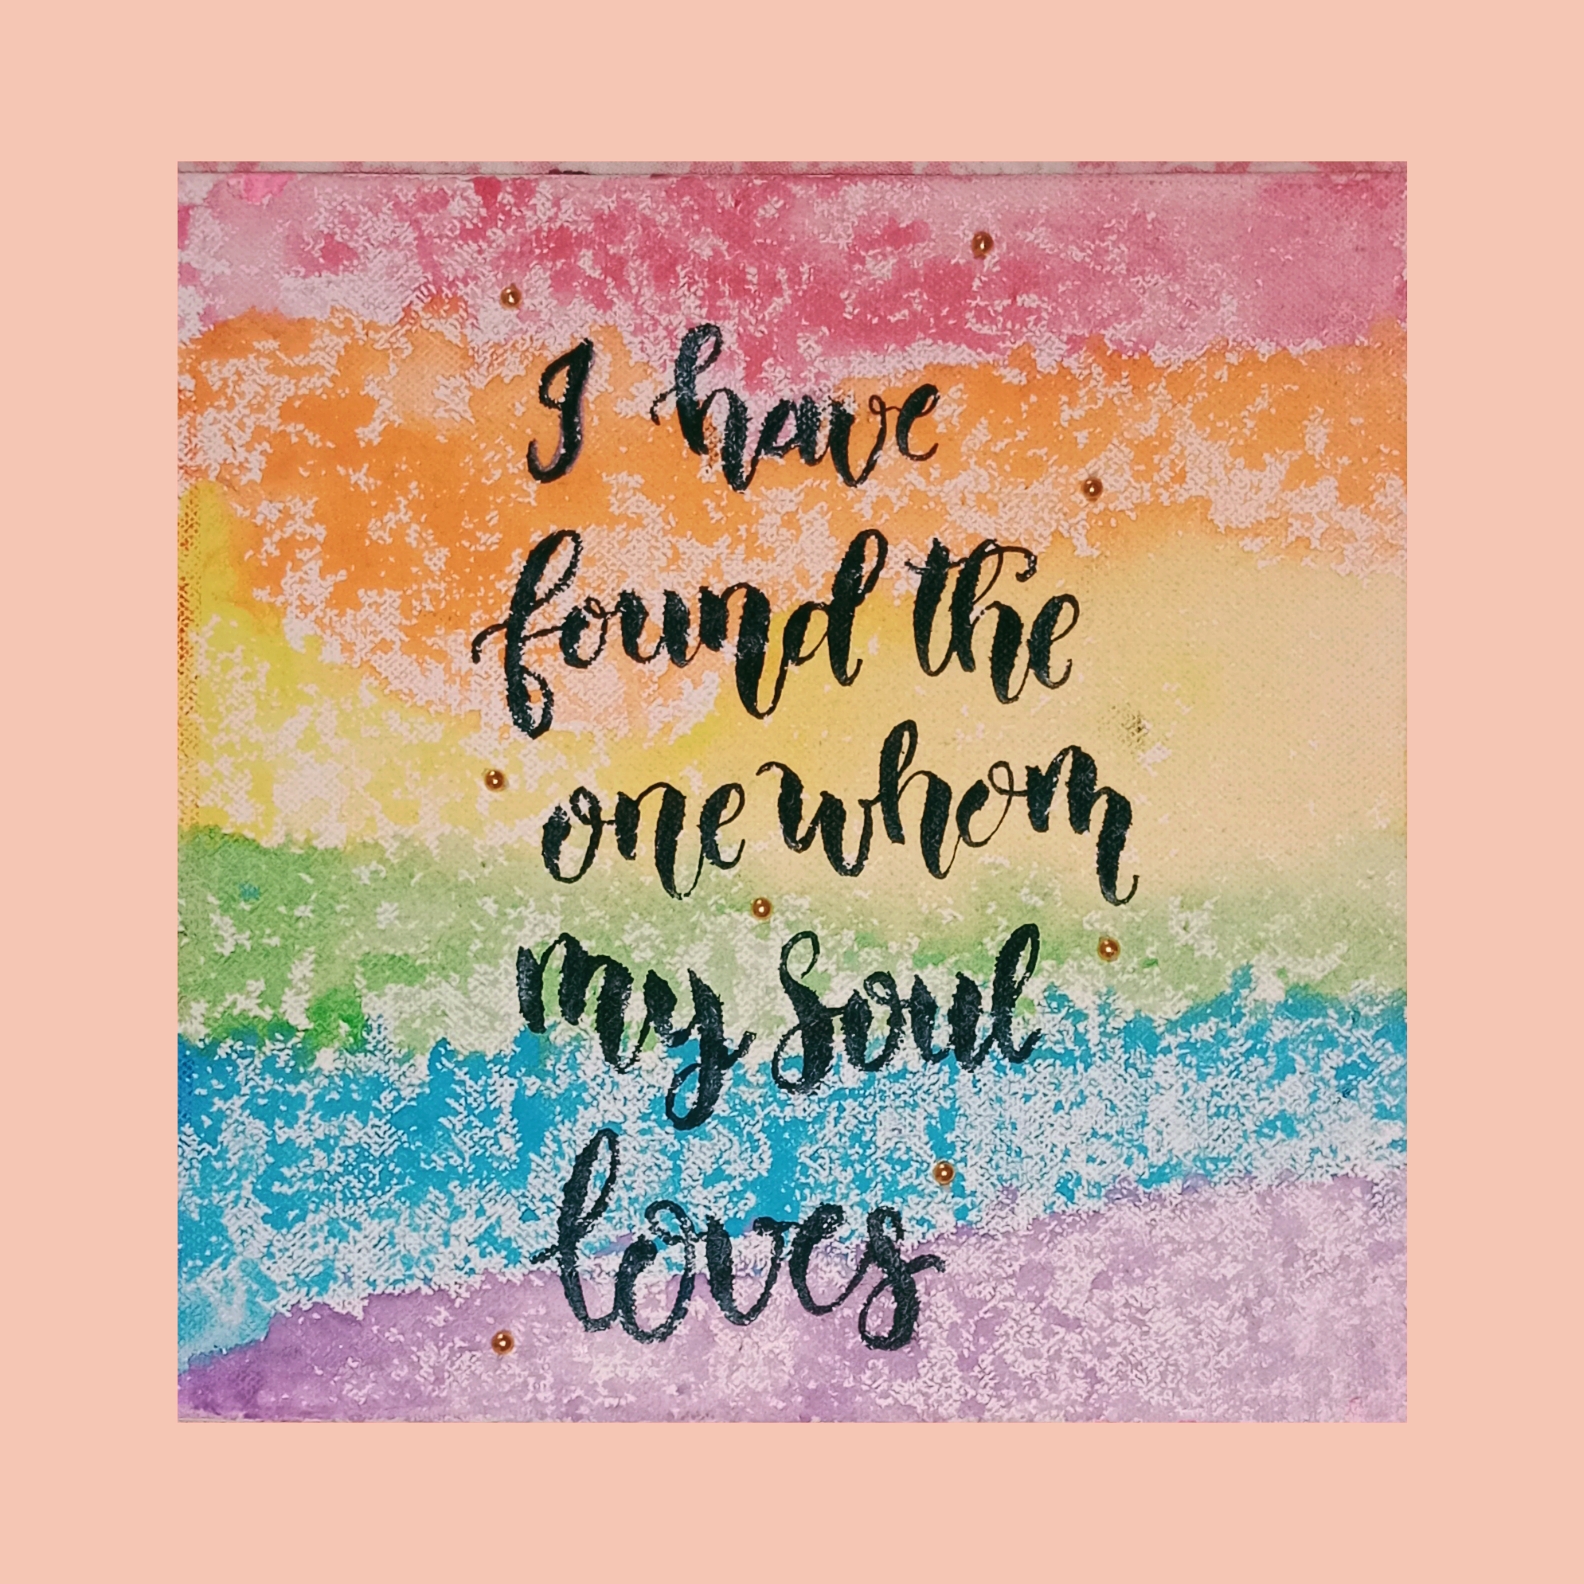 I have
found the
one whom
my soul
loves